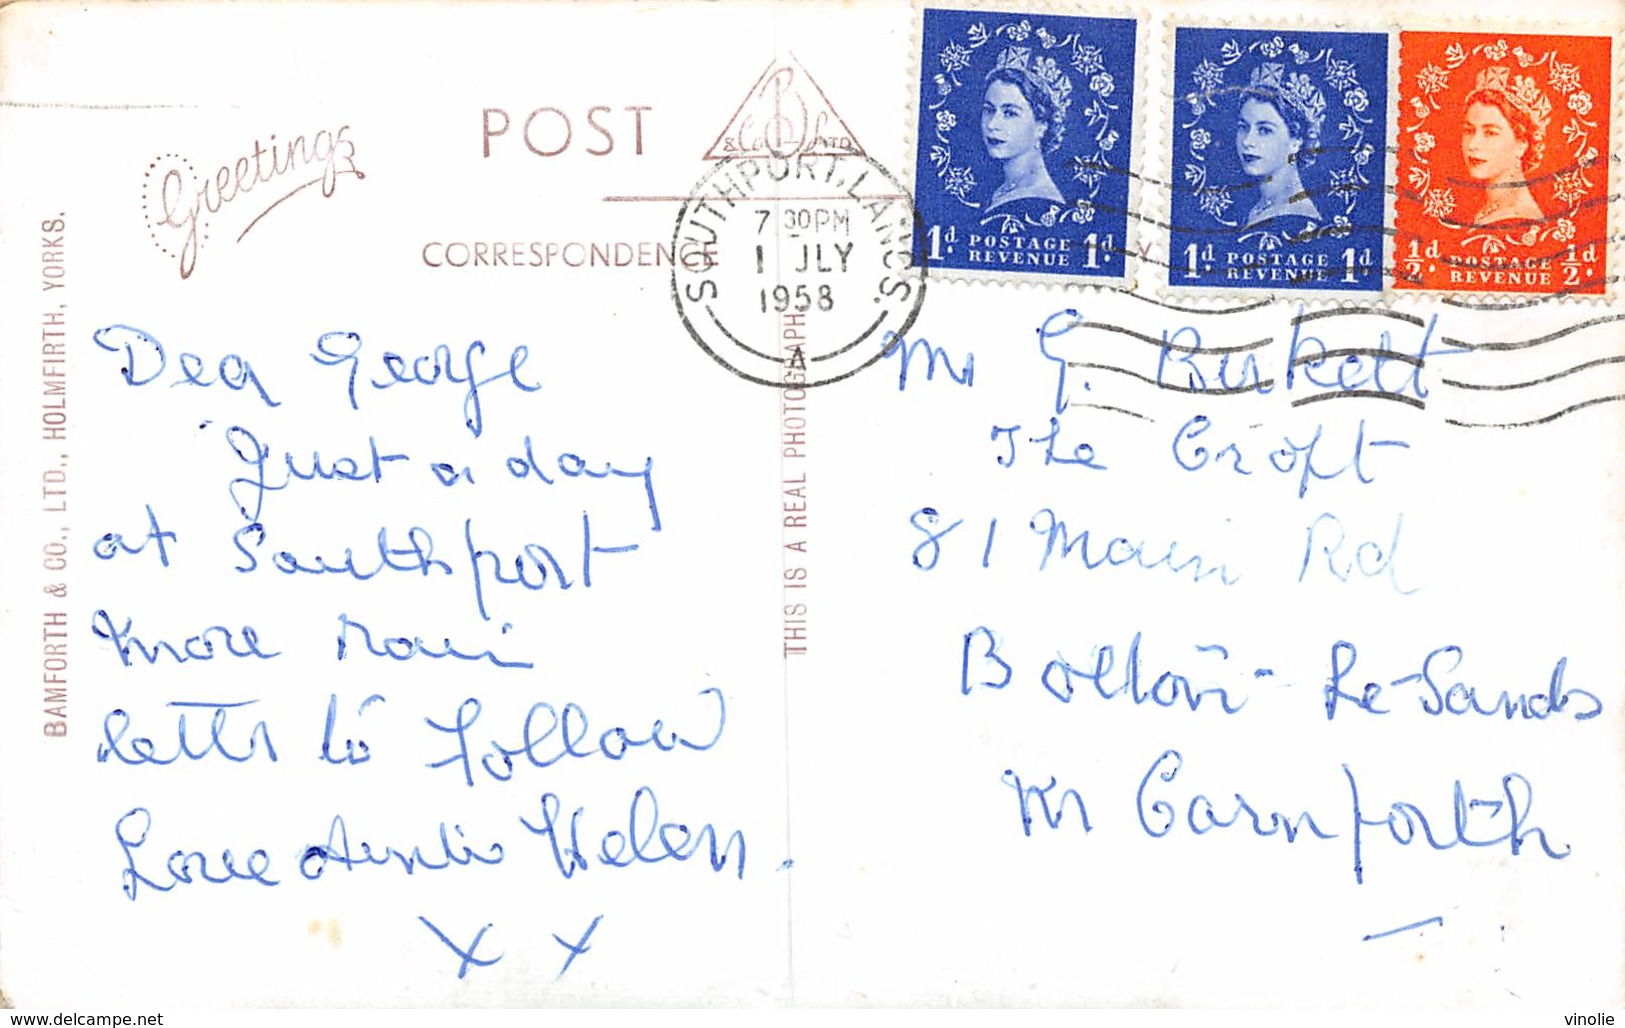 Greetings
POST
B
& Co LTD
CORRESPONDENCE
SOUTHPORT, LANCS.
7 30PM
1 JLY
1958
A
1d. POSTAGE REVENUE 1d.
1d POSTAGE REVENUE 1d
½d. POSTAGE REVENUE ½d.
BAMFORTH & CO., LTD., HOLMFIRTH, YORKS.
THIS IS A REAL PHOTOGRAPH
Dear George
Just a day
at Southport
more rain
letter to follow
Love Auntie Helen.
X X
Mr G. Birkett
The Croft
81 Main Rd
Bolton-Le-Sands
Nr Carnforth
delcampe.net
vinolie